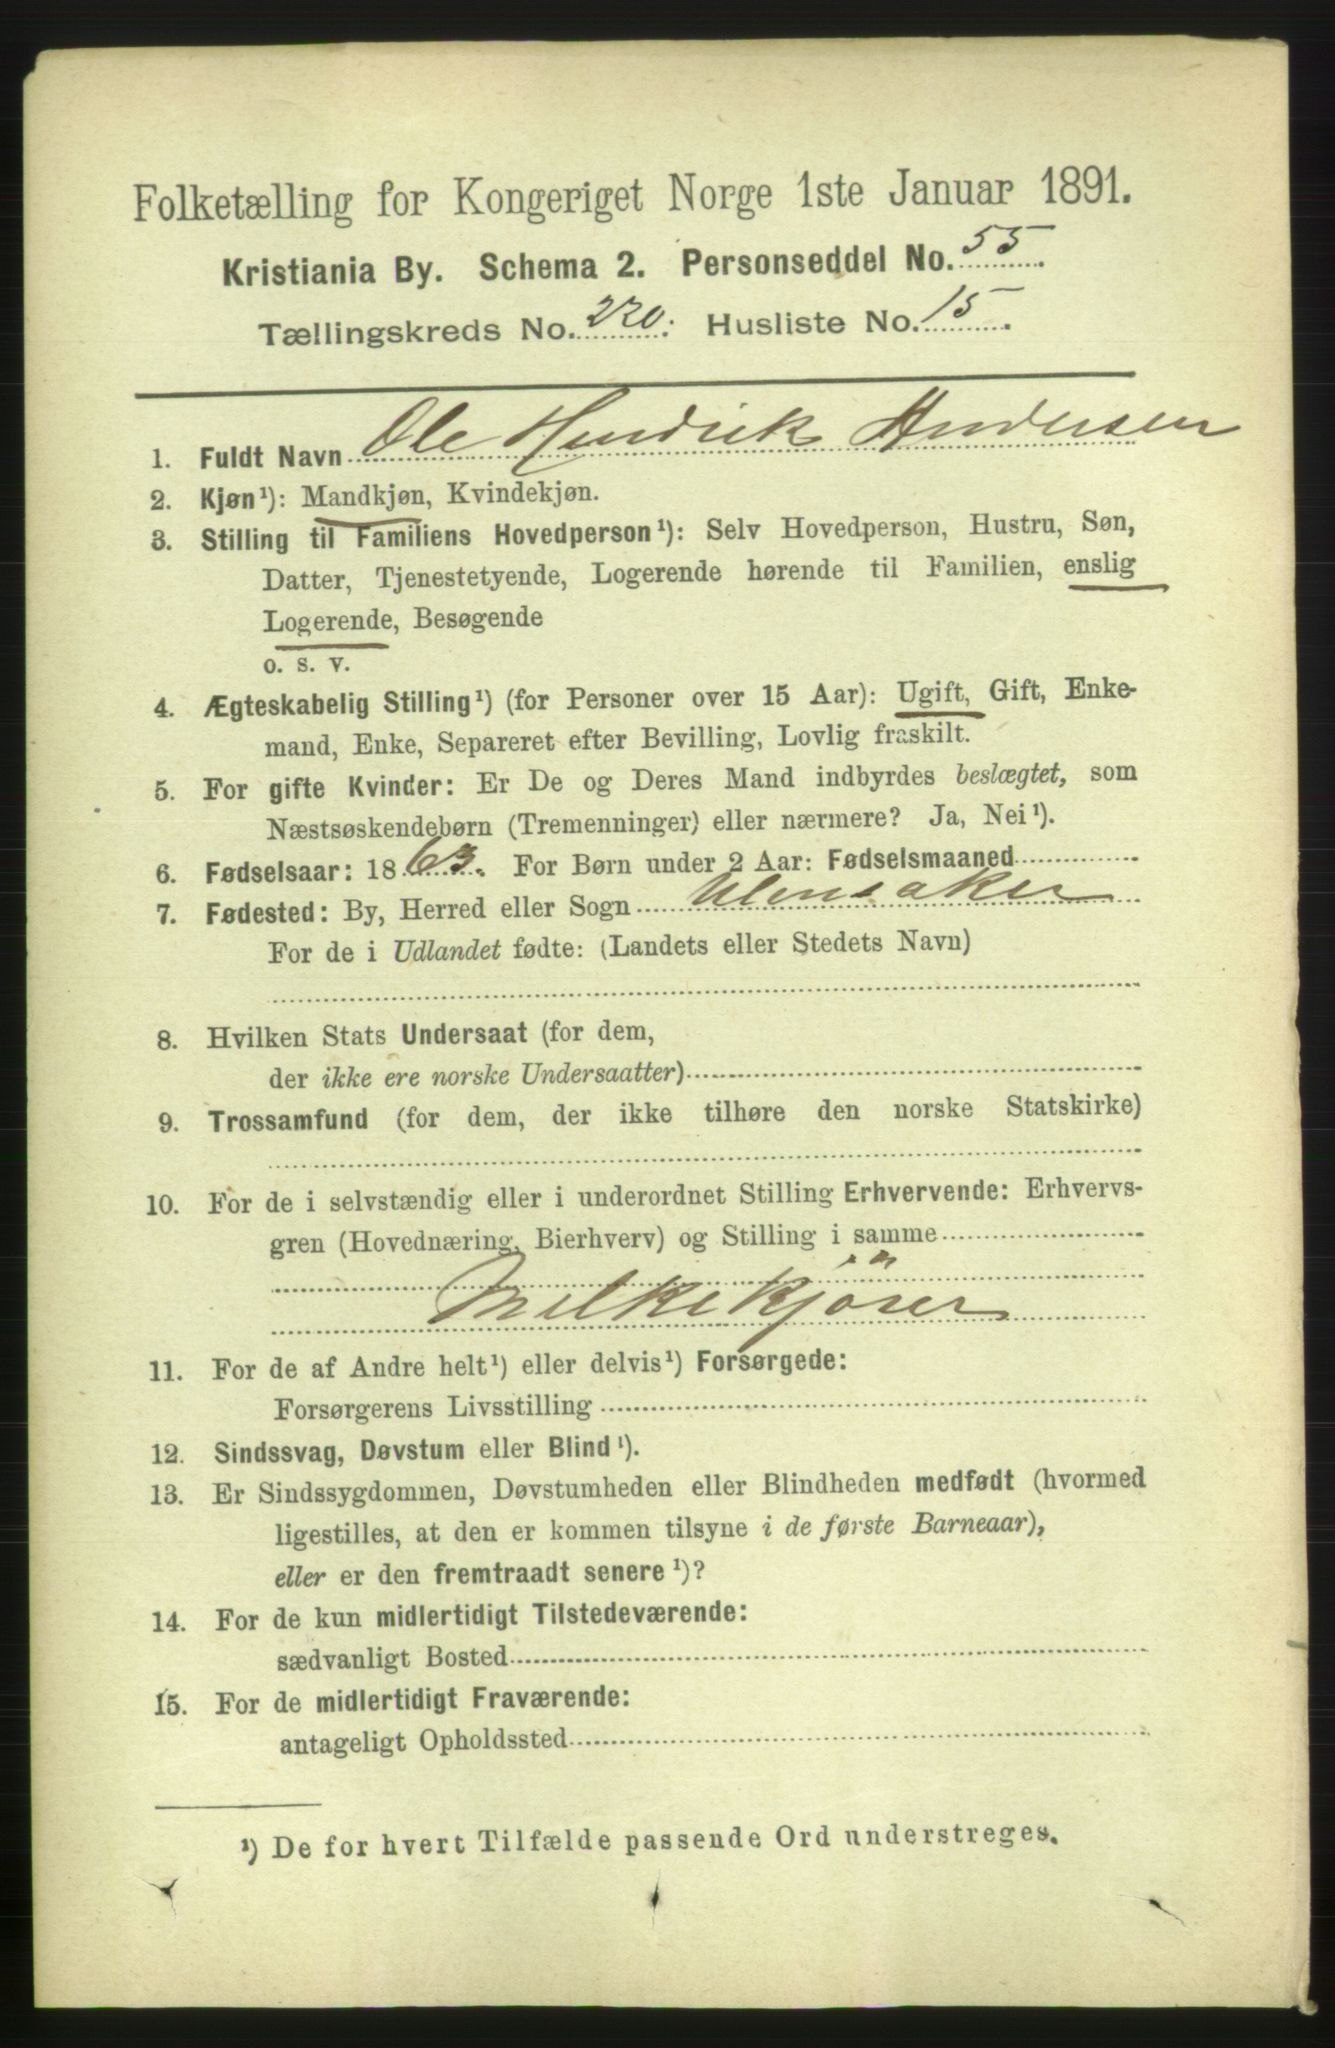 Folketælling for Kongeriget Norge 1ste Januar 1891.
Kristiania By. Schema 2. Personseddel No. 55.
Tællingskreds No. 220. Husliste No. 15.
1. Fuldt Navn Ole Hendrik Andersen
2. Kjøn¹): Mandkjøn, Kvindekjøn.
3. Stilling til Familiens Hovedperson¹): Selv Hovedperson, Hustru, Søn,
Datter, Tjenestetyende, Logerende hørende til Familien, enslig
Logerende, Besøgende
o. s. v.
4. Ægteskabelig Stilling¹) (for Personer over 15 Aar): Ugift, Gift, Enke-
mand, Enke, Separeret efter Bevilling, Lovlig fraskilt.
5. For gifte Kvinder: Er De og Deres Mand indbyrdes beslægtet, som
Næstsøskendebørn (Tremenninger) eller nærmere? Ja, Nei¹).
6. Fødselsaar: 1863. For Børn under 2 Aar: Fødselsmaaned
7. Fødested: By, Herred eller Sogn Ulensaker
For de i Udlandet fødte: (Landets eller Stedets Navn)
8. Hvilken Stats Undersaat (for dem,
der ikke ere norske Undersaatter)
9. Trossamfund (for dem, der ikke tilhøre den norske Statskirke)
10. For de i selvstændig eller i underordnet Stilling Erhvervende: Erhvervs-
gren (Hovednæring, Bierhverv) og Stilling i samme
Melkekjører
11. For de af Andre helt¹) eller delvis¹) Forsørgede:
Forsørgerens Livsstilling
12. Sindssvag, Døvstum eller Blind¹).
13. Er Sindssygdommen, Døvstumheden eller Blindheden medfødt (hvormed
ligestilles, at den er kommen tilsyne i de første Barneaar),
eller er den fremtraadt senere¹)?
14. For de kun midlertidigt Tilstedeværende:
sædvanligt Bosted
15. For de midlertidigt Fraværende:
antageligt Opholdssted
¹) De for hvert Tilfælde passende Ord understreges.